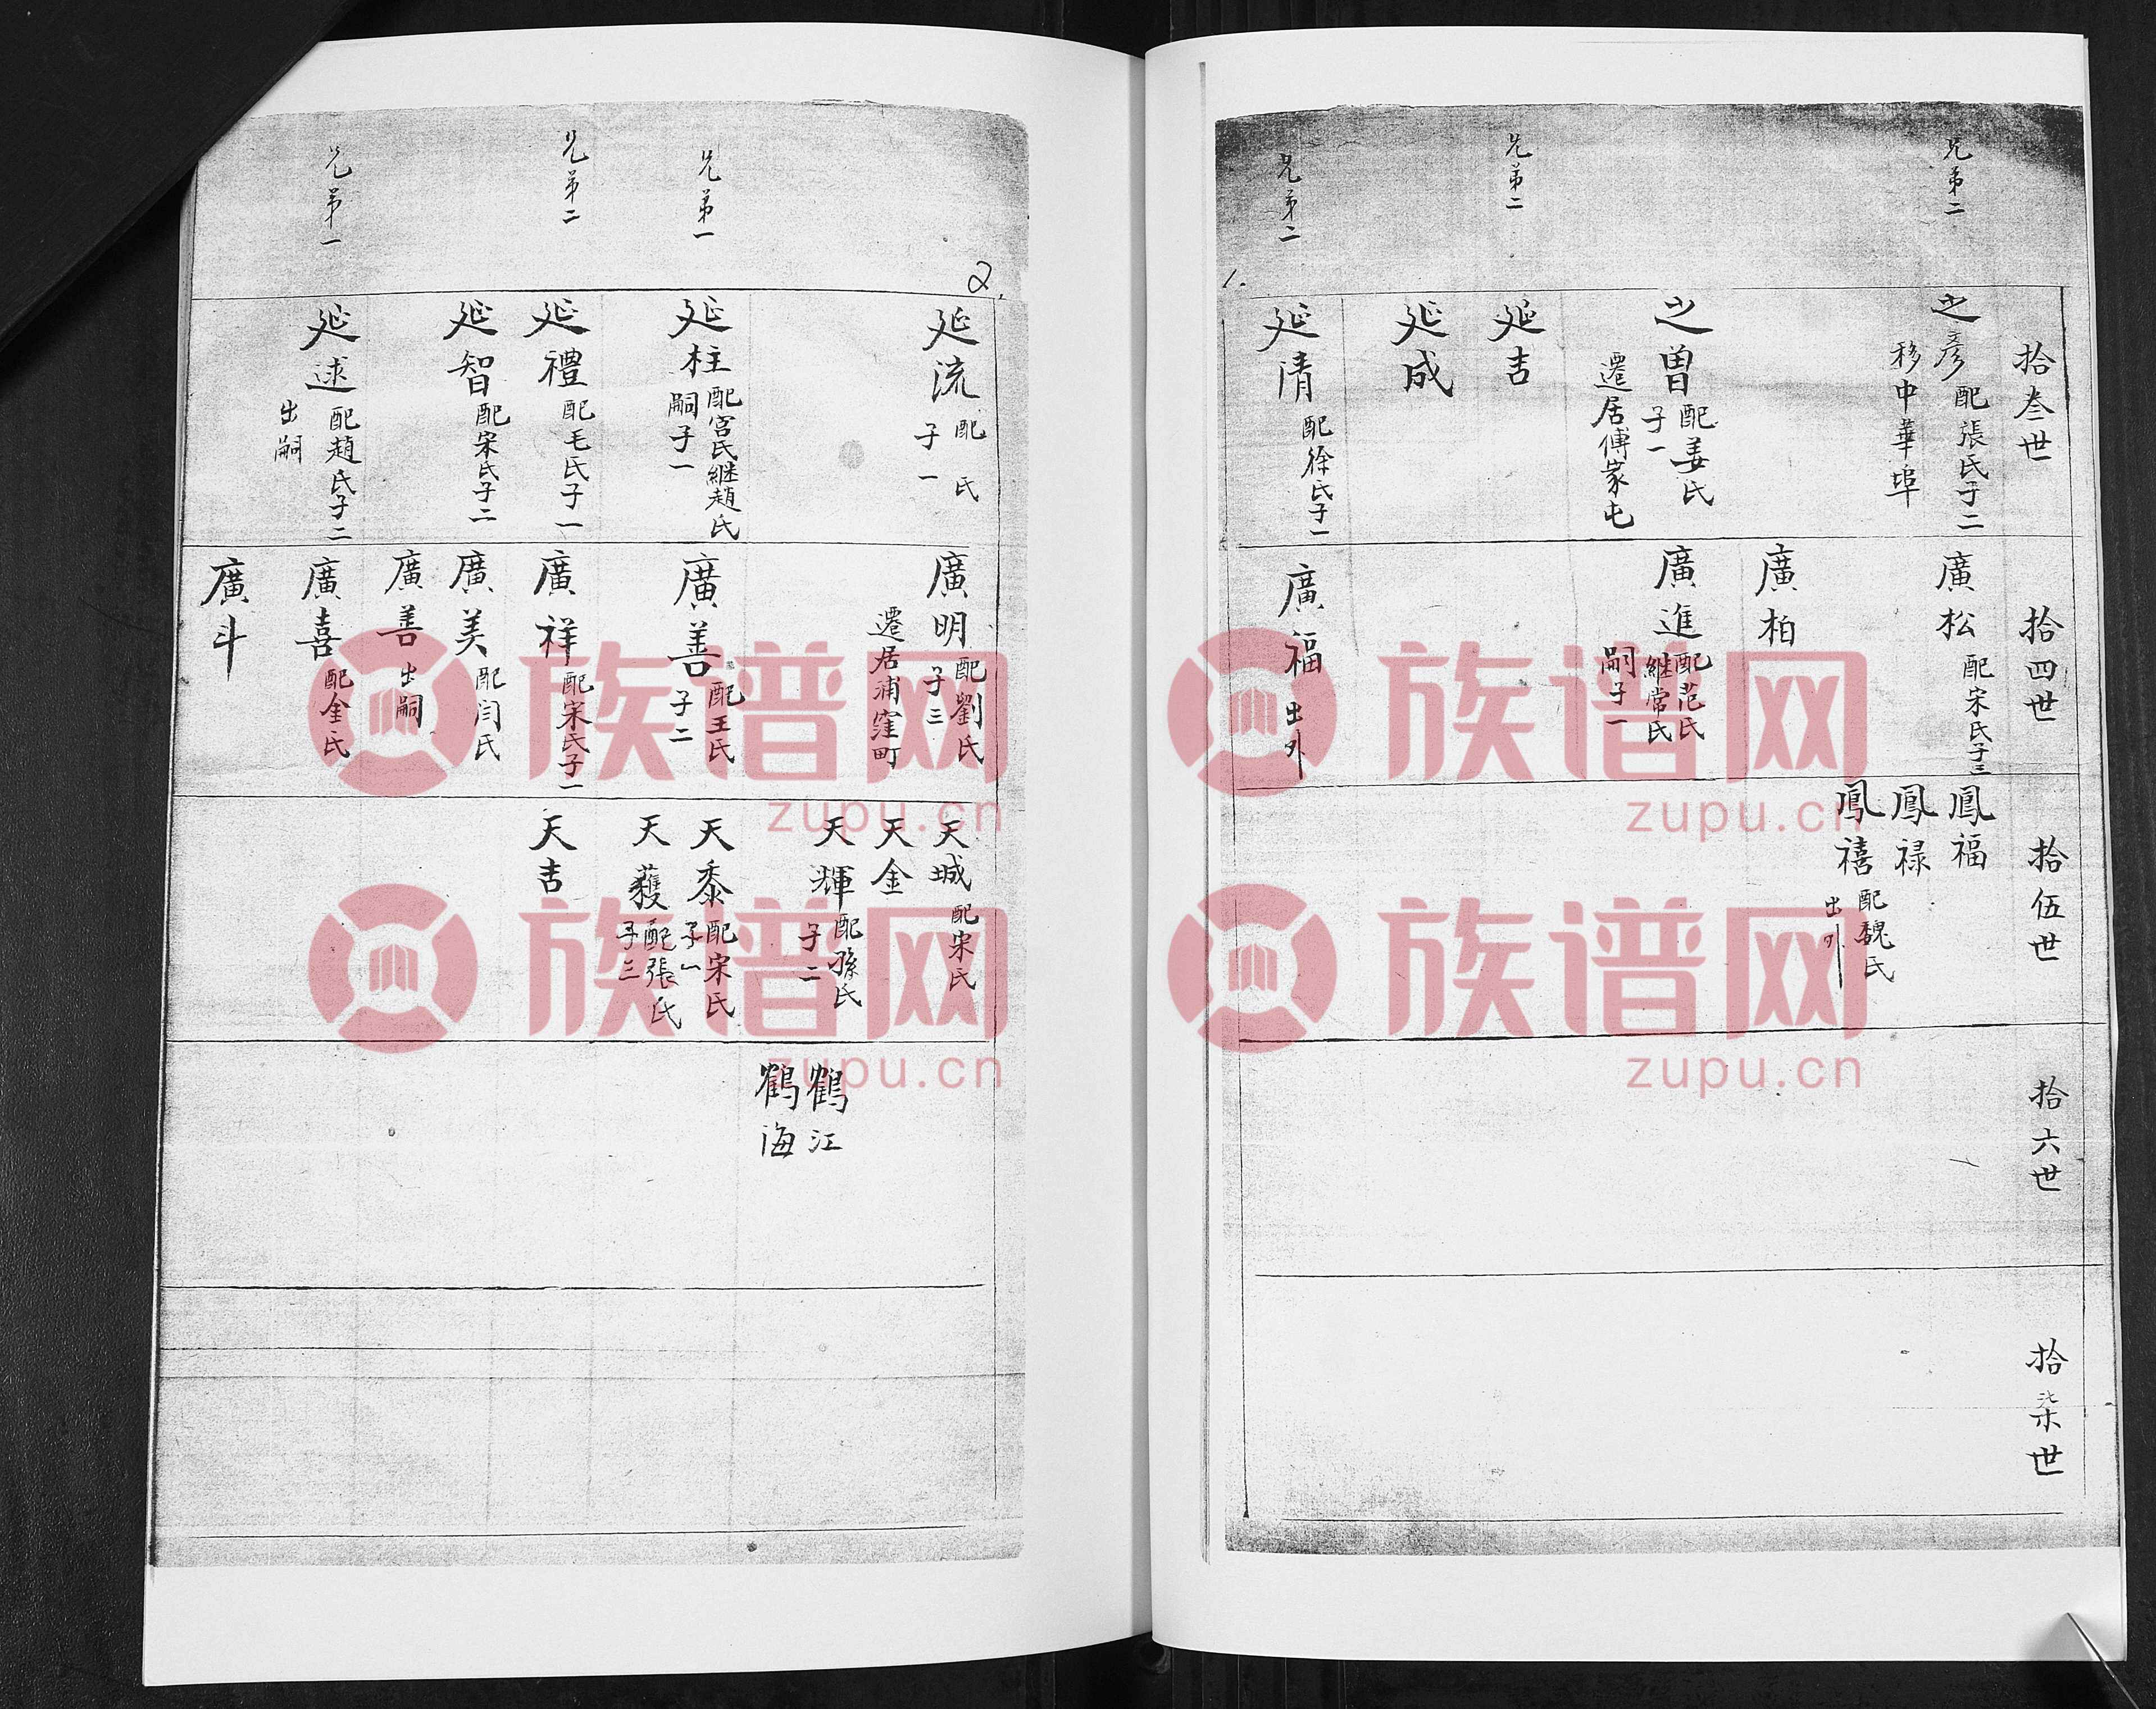 兄弟二
兄弟二
兄弟二
1.
拾叁世
之彦 配張氏子二
移中華埠
之曾 配姜氏
子一
遷居傅家屯
延吉
延成
延清 配徐氏子一
拾四世
廣松 配宋氏子三
廣柏
廣進 配范氏
継常氏
嗣子一
廣福 出外
拾伍世
鳳福
鳳禄
鳳禧 配魏氏
出外
拾六世
拾柒世
兄弟一
兄弟二
兄弟一
2.
延流 配 氏
子一
延柱 配宫氏継趙氏
嗣子一
延禮 配毛氏子一
延智 配宋氏子二
延逑 配趙氏子二
出嗣
廣明 配劉氏
子三
遷居浦窪町
廣善 配王氏
子二
廣祥 配宋氏子一
廣美 配闫氏
廣善 出嗣
廣喜 配金氏
廣斗
天城 配宋氏
天金
天輝 配孫氏
子二
天黍 配宋氏
子一
天穫 配張氏
子三
天吉
鶴江
鶴海
族谱网
zupu.cn
族谱网
zupu.cn
族谱网
zupu.cn
族谱网
zupu.cn